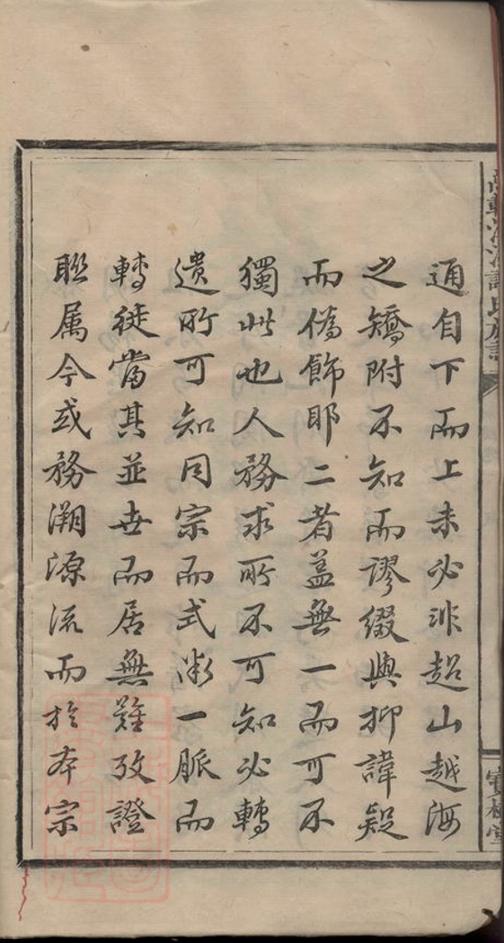 通自下而上未必非超山越海
之矯附不知而謬綴與抑諱疑
而偽飾耶二者蓋無一而可不
獨此也人務求所不可知必轉
遺所可知同宗而式微一脈而
轉徙當其並世而居無難攷證
聯属今或務溯源流而於本宗